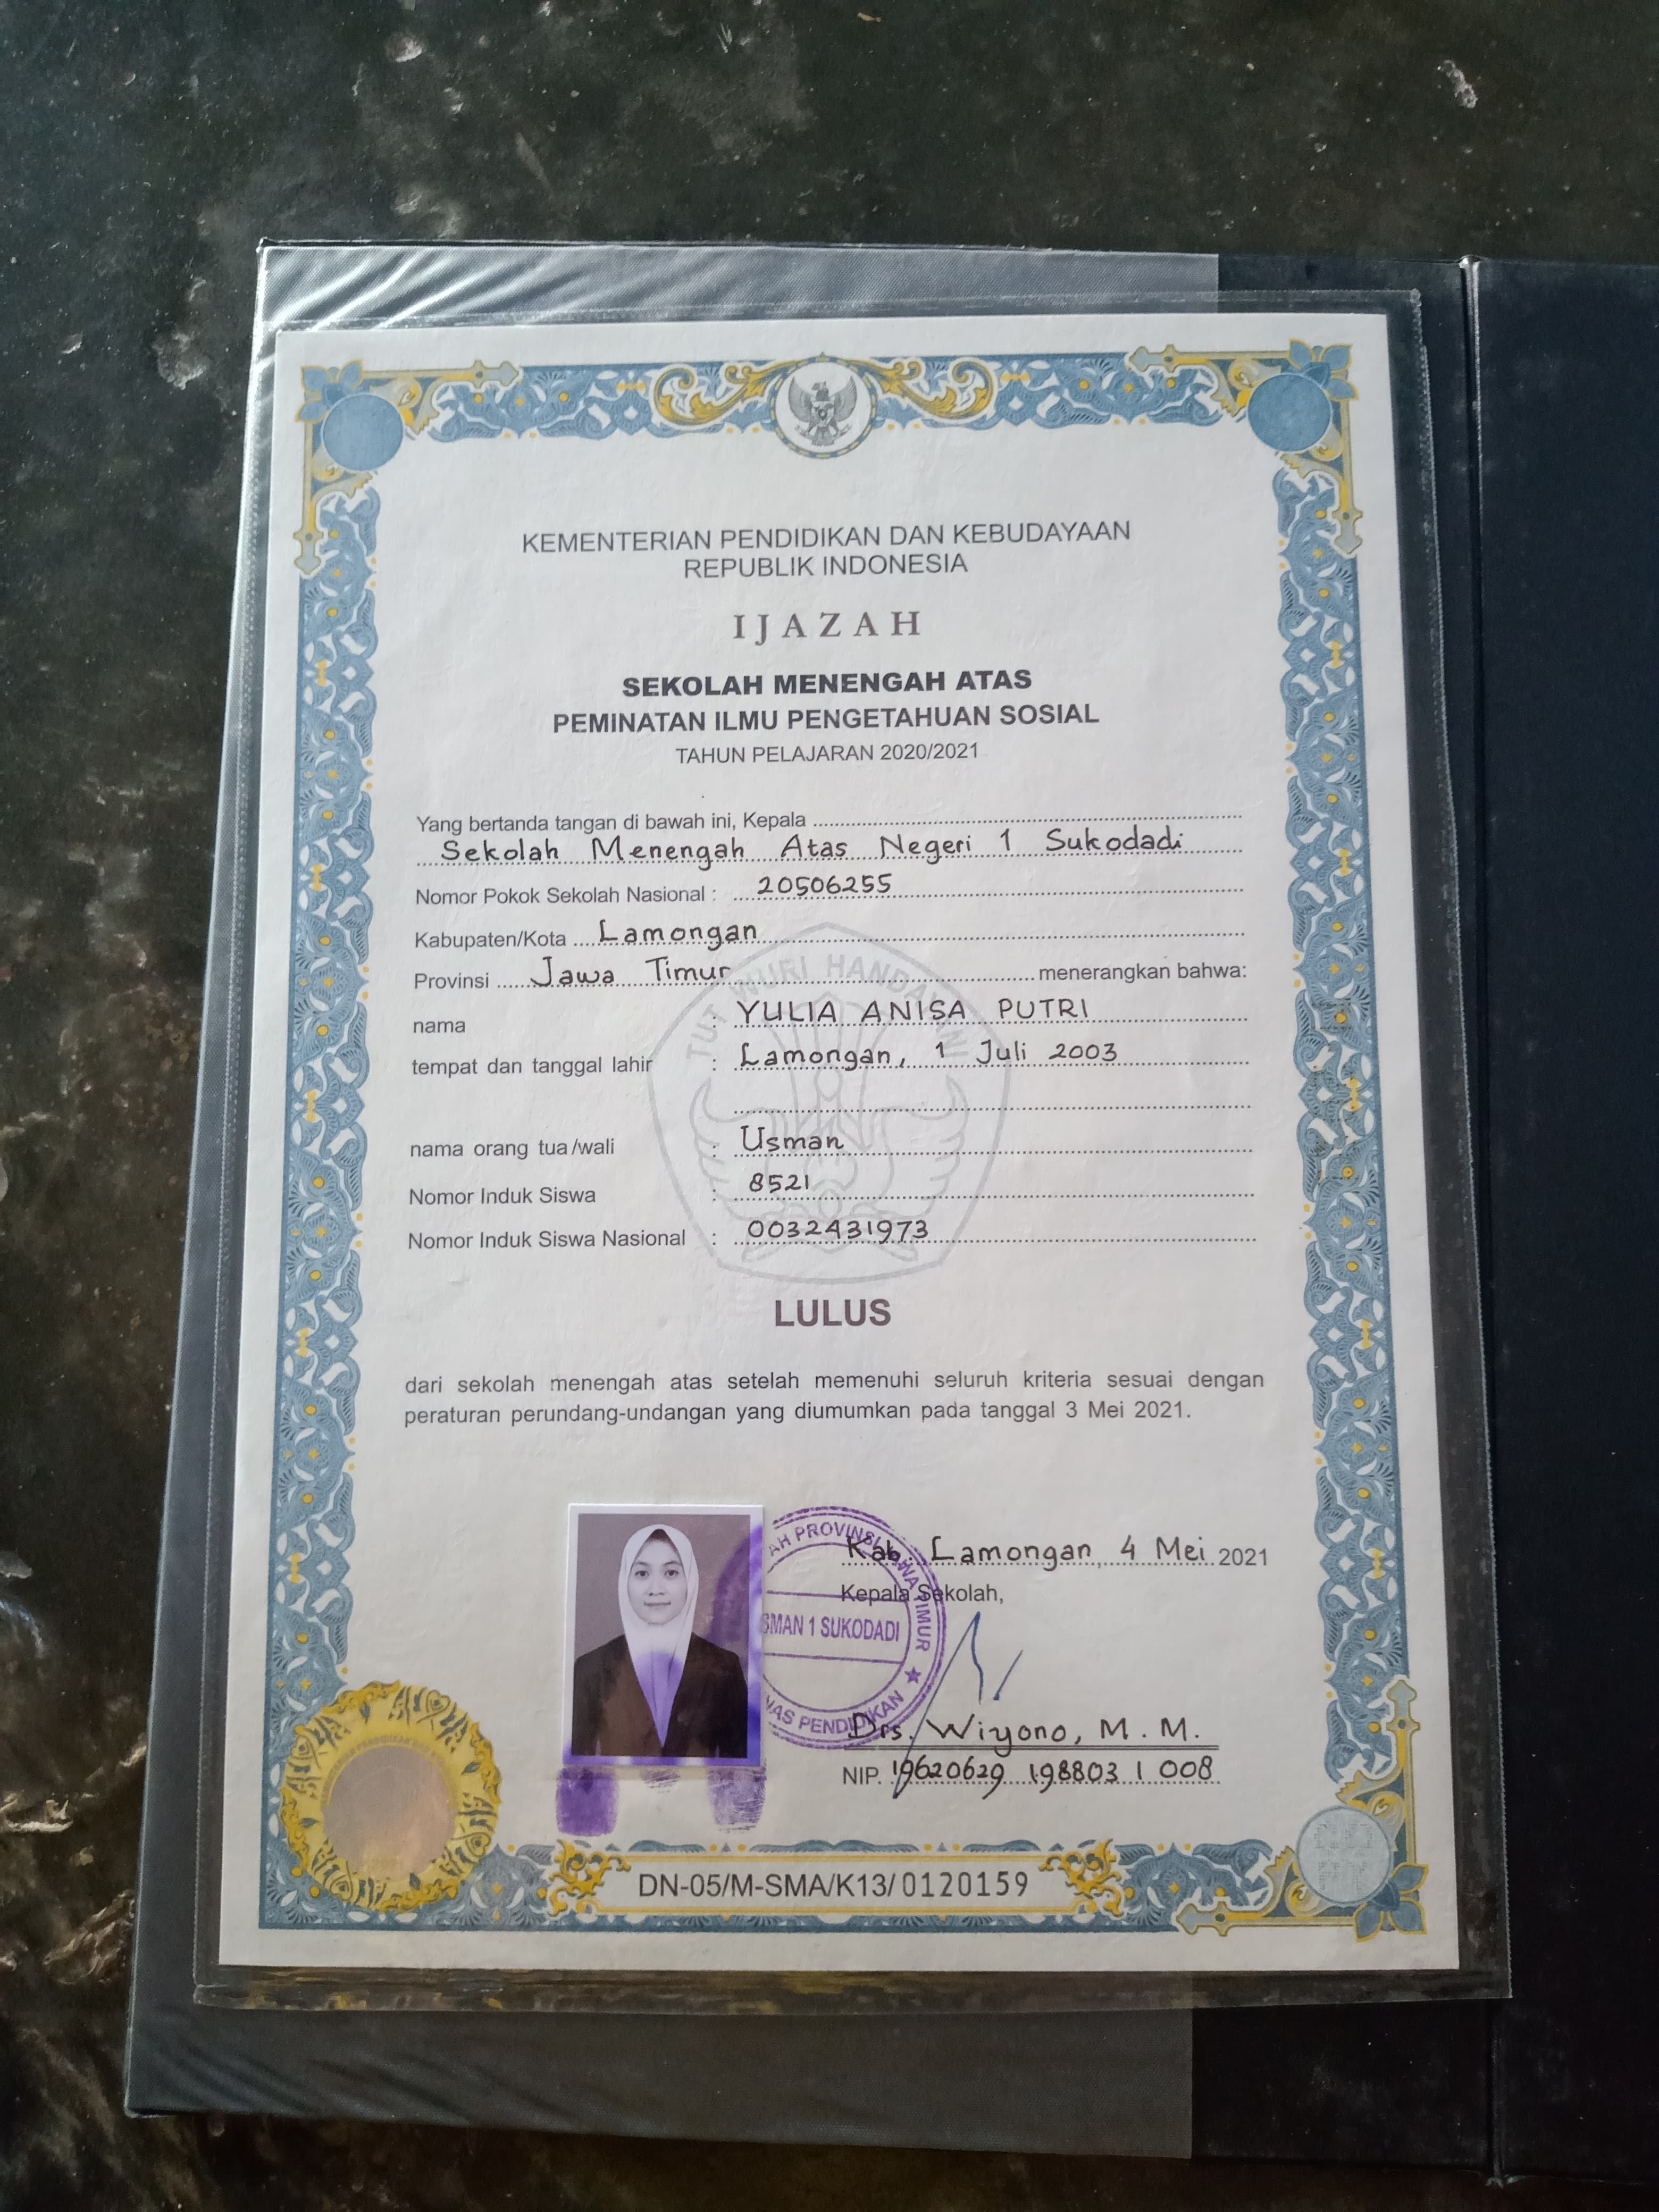 KEMENTERIAN PENDIDIKAN DAN KEBUDAYAAN
REPUBLIK INDONESIA
IJAZAH
SEKOLAH MENENGAH ATAS
PEMINATAN ILMU PENGETAHUAN SOSIAL
TAHUN PELAJARAN 2020/2021
Yang bertanda tangan di bawah ini, Kepala
Sekolah Menengah Atas Negeri 1 Sukodadi
Nomor Pokok Sekolah Nasional : 20506255
Kabupaten/Kota Lamongan
Provinsi Jawa Timur menerangkan bahwa:
nama : YULIA ANISA PUTRI
tempat dan tanggal lahir : Lamongan, 1 Juli 2003
nama orang tua/wali : Usman
Nomor Induk Siswa : 8521
Nomor Induk Siswa Nasional : 0032431973
TUT WURI HANDAYANI
LULUS
dari sekolah menengah atas setelah memenuhi seluruh kriteria sesuai dengan
peraturan perundang-undangan yang diumumkan pada tanggal 3 Mei 2021.
Kab. Lamongan, 4 Mei 2021
Kepala Sekolah,
AH PROVINSI JAWA TIMUR
SMAN 1 SUKODADI
NAS PENDIDIKAN
Drs. Wiyono, M. M.
NIP. 19620629 198803 1 008
DN-05/M-SMA/K13/0120159